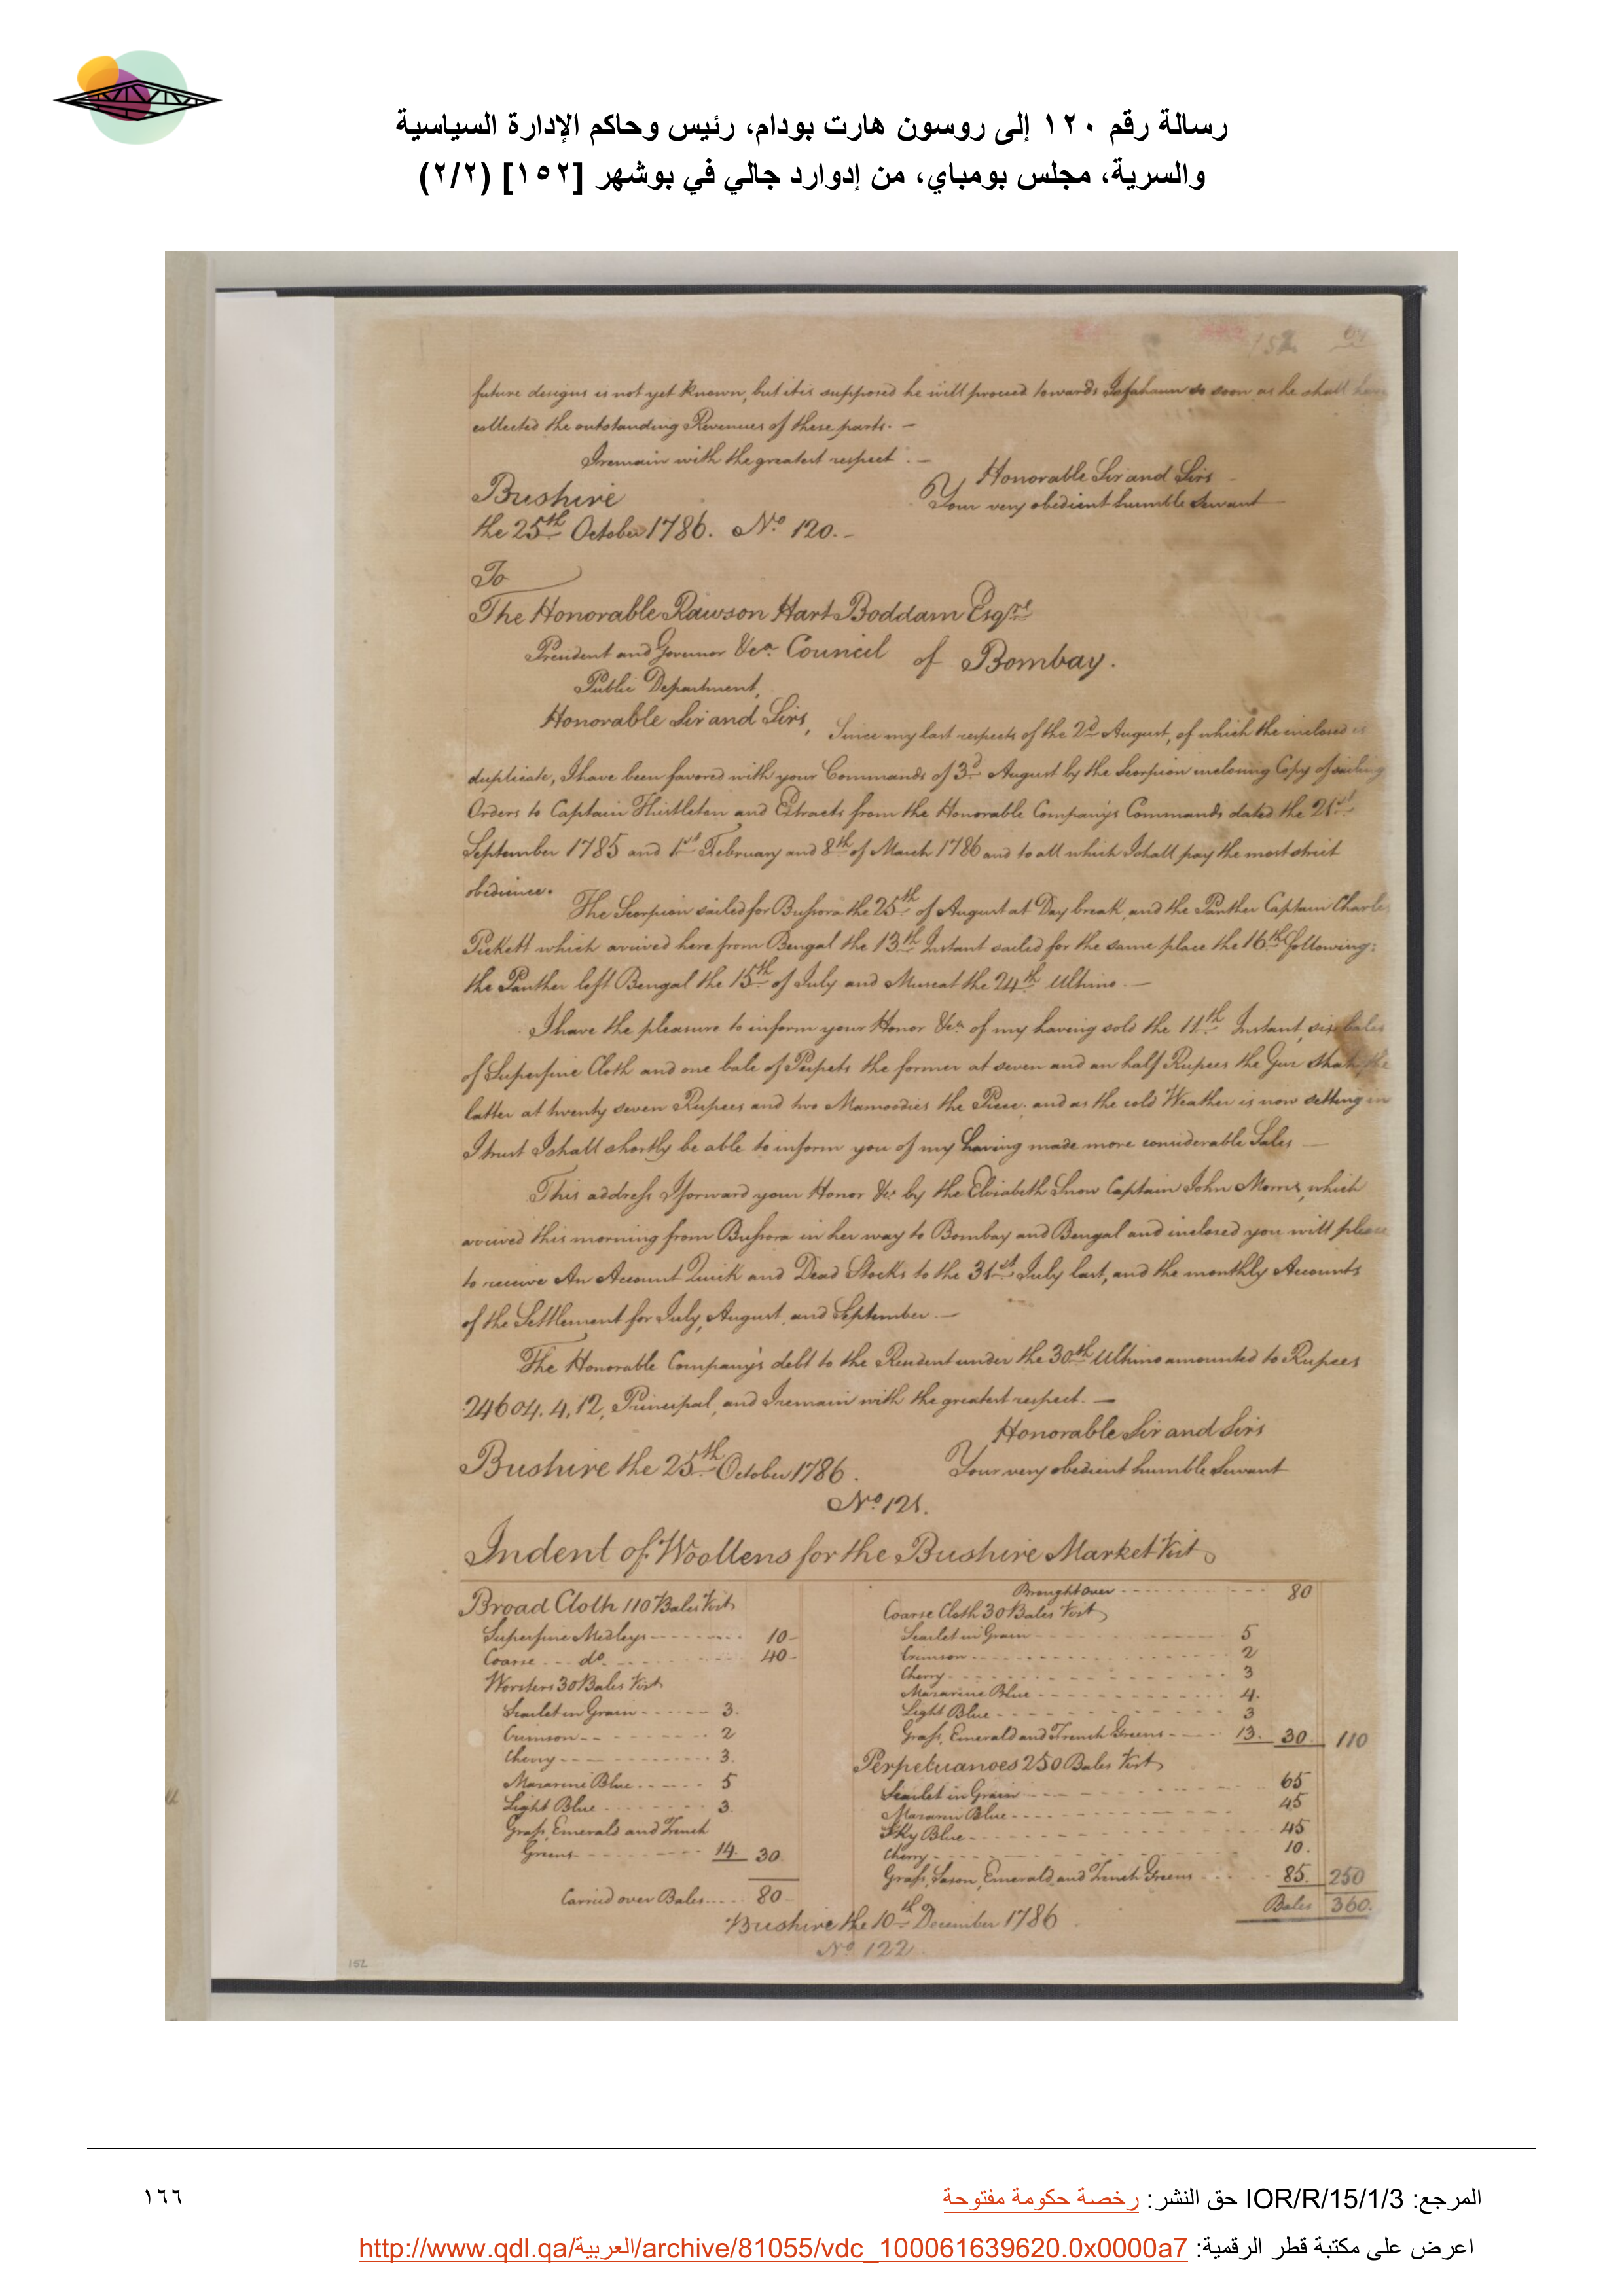 رسالة رقم ١٢٠ إلى روسون هارت بودام، رئيس وحاكم الإدارة السياسية
والسرية، مجلس بومباي، من إدوارد جالي في بوشهر [١٥٢] (٢/٢)
152
future designs is not yet known, but it is supposed he will proceed towards Isfahaun so soon as he shall have
collected the outstanding Revenues of these parts. —
I remain with the greatest respect. —
Honorable Sir and Sirs
Bushire
Your very obedient humble Servant
the 25th October 1786. No. 120. -
To
The Honorable Rawson Hart Boddam Esqre
President and Governor &ca. Council of Bombay.
Public Department,
Honorable Sir and Sirs,
Since my last respects of the 2d August, of which the inclosed is
duplicate, I have been favored with your Commands of 3d August by the Scorpion inclosing Copy of sailing
Orders to Captain Thistleton and Extracts from the Honorable Company's Commands dated the 21st
September 1785 and 1st February and 8th of March 1786 and to all which I shall pay the most strict
obedience.
The Scorpion sailed for Bussora the 25th of August at Day break, and the Panther Captain Charles
Pickett which arrived here from Bengal the 13th Instant sailed for the same place the 16th following:
the Panther left Bengal the 15th of July and Muscat the 24th Ultimo. —
I have the pleasure to inform your Honor &ca of my having sold the 11th Instant, six bales
of Superfine Cloth and one bale of Perpets the former at seven and an half Rupees the Guz Shah, the
latter at twenty seven Rupees and two Mamoodies the Piece; and as the cold Weather is now setting in
I trust I shall shortly be able to inform you of my having made more considerable Sales —
This address I forward your Honor &c by the Elisabeth Snow Captain John Morris, which
arrived this morning from Bussora in her way to Bombay and Bengal and inclosed you will please
to receive An Account Quick and Dead Stocks to the 31st July last, and the monthly Accounts
of the Settlement for July, August, and September. —
The Honorable Company's debt to the Resident under the 30th Ultimo amounted to Rupees
24604. 4, 12, Principal, and I remain with the greatest respect. —
Honorable Sir and Sirs
Bushire the 25th October 1786.
Your very obedient humble Servant
No. 121.
Indent of Woollens for the Bushire Market Vizt
Broad Cloth 110 Bales Vizt
Superfine Medleys 10
Coarse do. 40
Worsters 30 Bales Vizt
Scarlet in Grain 3.
Crimson 2
Cherry 3.
Mazarine Blue 5
Light Blue 3.
Grass, Emerald and French
Greens 14. 30.
Carried over Bales 80
Brought over 80
Coarse Cloth 30 Bales Vizt
Scarlet in Grain 5
Crimson 2
Cherry 3
Mazarine Blue 4.
Light Blue 3
Grass, Emerald and French Greens 13. 30. 110
Perpetuanoes 250 Bales Vizt
Scarlet in Grain 65
Mazarin Blue 45
Sky Blue 45
Cherry 10.
Grass, Saxon, Emerald, and French Greens 85. 250
Bales 360.
Bushire the 10th December 1786
No. 122.
152
المرجع: IOR/R/15/1/3 حق النشر: رخصة حكومة مفتوحة
١٦٦
اعرض على مكتبة قطر الرقمية: http://www.qdl.qa/العربية/archive/81055/vdc_100061639620.0x0000a7